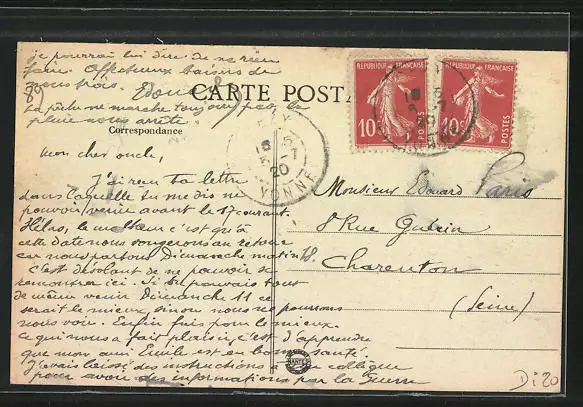 je pourrai lui dire de ne rien
faire. Affectueux baisers de
nous trois. Edouard
La pêche ne marche toujours pas la
pluie nous arrête.
CARTE POSTA
Correspondance
RÉPUBLIQUE FRANÇAISE
10c
POSTES
RÉPUBLIQUE FRANÇAISE
10c
POSTES
20
YONNE
Mon cher oncle,
J'ai reçu ta lettre
dans laquelle tu me dis ne
pouvoir venir avant le 17 courant.
Hélas, le malheur c'est qu'à
cette date nous songerons au retour
car nous partons Dimanche matin 18.
C'est désolant de ne pouvoir se
rencontrer ici. Si tu pouvais tout
de même venir Dimanche 11 ce
serait le mieux, sinon nous ne pourrons
nous voir. Enfin fais pour le mieux.
Ce qui nous a fait plaisir, c'est d'apprendre
que mon ami Emile est en bonne santé.
J'avais laissé des instructions à collègue
pour avoir des informations par la
Monsieur Edouard Paris
8 Rue
Charenton
(Seine)
NANTES
Di 20